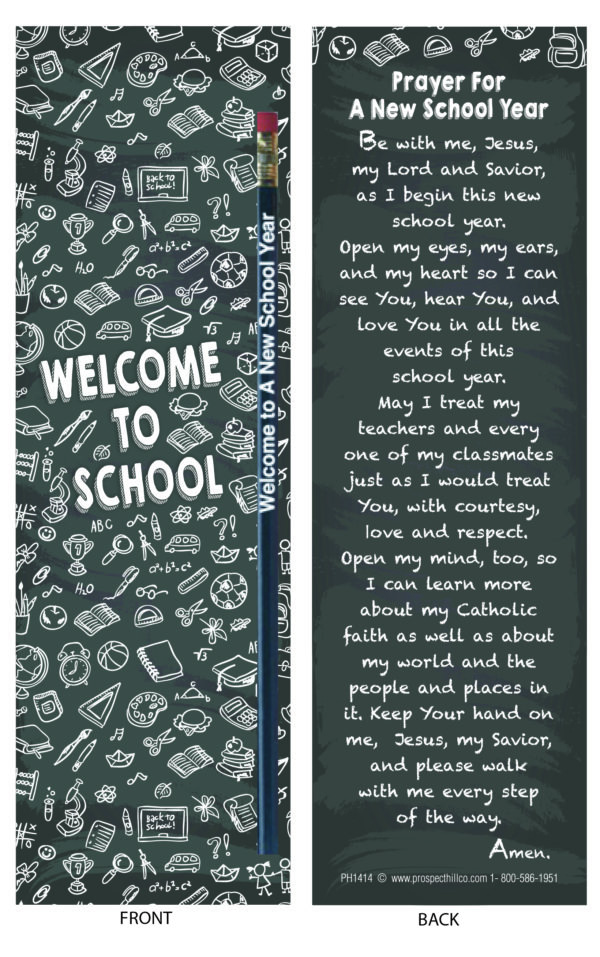 BACK TO
SCHOOL!
?!
a²+b²=c²
H₂O
√3
WELCOME
TO
SCHOOL
Welcome to A New School Year
ABC
?!
a²+b²=c²
H₂O
√3
A B C
BACK TO
SCHOOL!
?!
a²+b²=c²
FRONT
Prayer For
A New School Year
Be with me, Jesus,
my Lord and Savior,
as I begin this new
school year.
Open my eyes, my ears,
and my heart so I can
see You, hear You, and
love You in all the
events of this
school year.
May I treat my
teachers and every
one of my classmates
just as I would treat
You, with courtesy,
love and respect.
Open my mind, too, so
I can learn more
about my Catholic
faith as well as about
my world and the
people and places in
it. Keep Your hand on
me, Jesus, my Savior,
and please walk
with me every step
of the way.
Amen.
PH1414 © www.prospecthillco.com 1- 800-586-1951
BACK